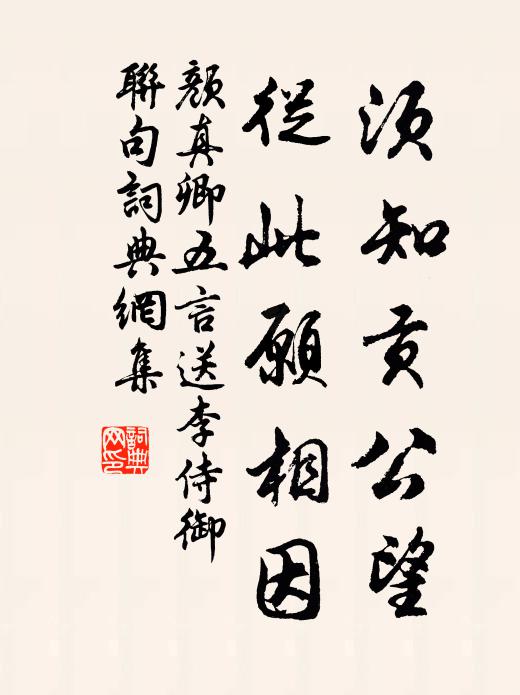 須知貢公望
從此願相因
顏真卿五言送李侍御
聯句詞典網集
詞典
网印